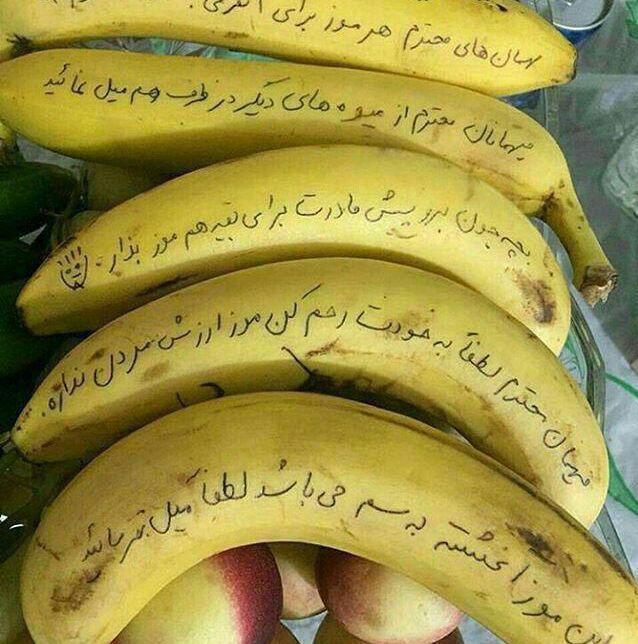 مهمان های محترم هر موز برای ۱ نفر می
میهمانان محترم از میوه های دیگر در ظرف هم میل نمائید
بچه جون برو پیش مادرت برای بقیه هم موز بذار.
میهمان محترم لطفاً به خودت رحم کن موز ارزش مردن نداره.
این موز آغشته به سم می باشد لطفاً میل نفرمائید